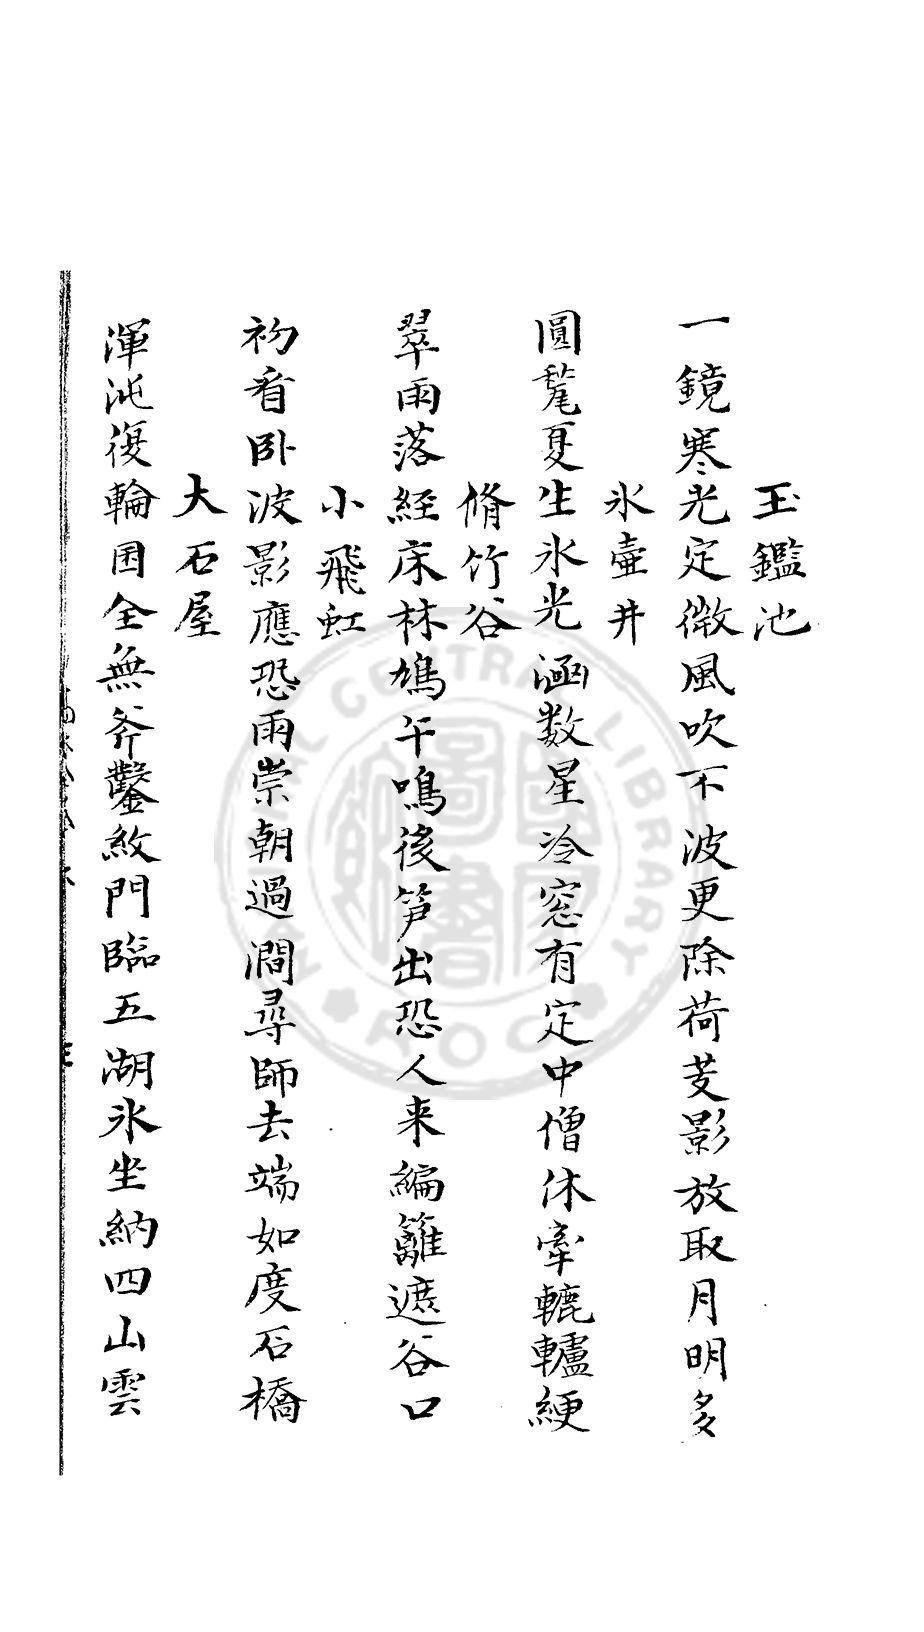 玉鑑池
一鏡寒光定微風吹不波更除荷芰影放取月明多
氷壺井
圓甃夏生氷光涵数星冷窓有定中僧休牽轆轤綆
脩竹谷
翠雨落経床林鳩午鳴後笋出恐人来編籬遮谷口
小飛虹
初看卧波影應恐雨崇朝過澗尋師去端如度石橋
大石屋
渾沌復輪囷全無斧鑿紋門臨五湖氷坐納四山雲
NATIONAL CENTRAL LIBRARY
ROC
國家圖書館